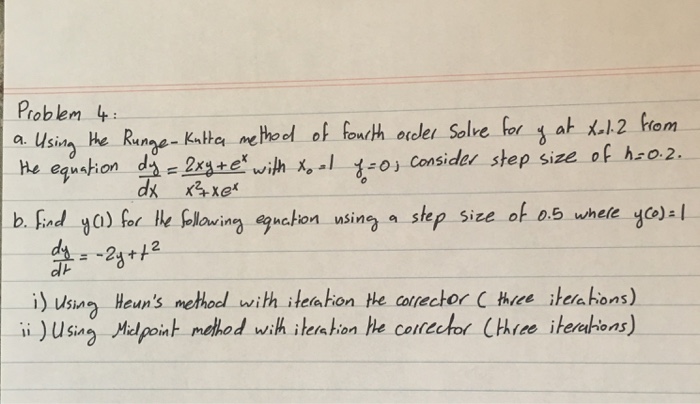 Problem 4:
a. Using the Runge-Kutta method of fourth order Solve for y at x=1.2 from
the equation dy/dx = (2xy+e^x)/(x²+xe^x) with x₀=1 y₀=0; consider step size of h=0.2.
b. find y(1) for the following equation using a step size of 0.5 where y(0)=1
dy/dt = -2y+t²
i) Using Heun's method with iteration the corrector (three iterations)
ii) Using Midpoint method with iteration the corrector (three iterations)